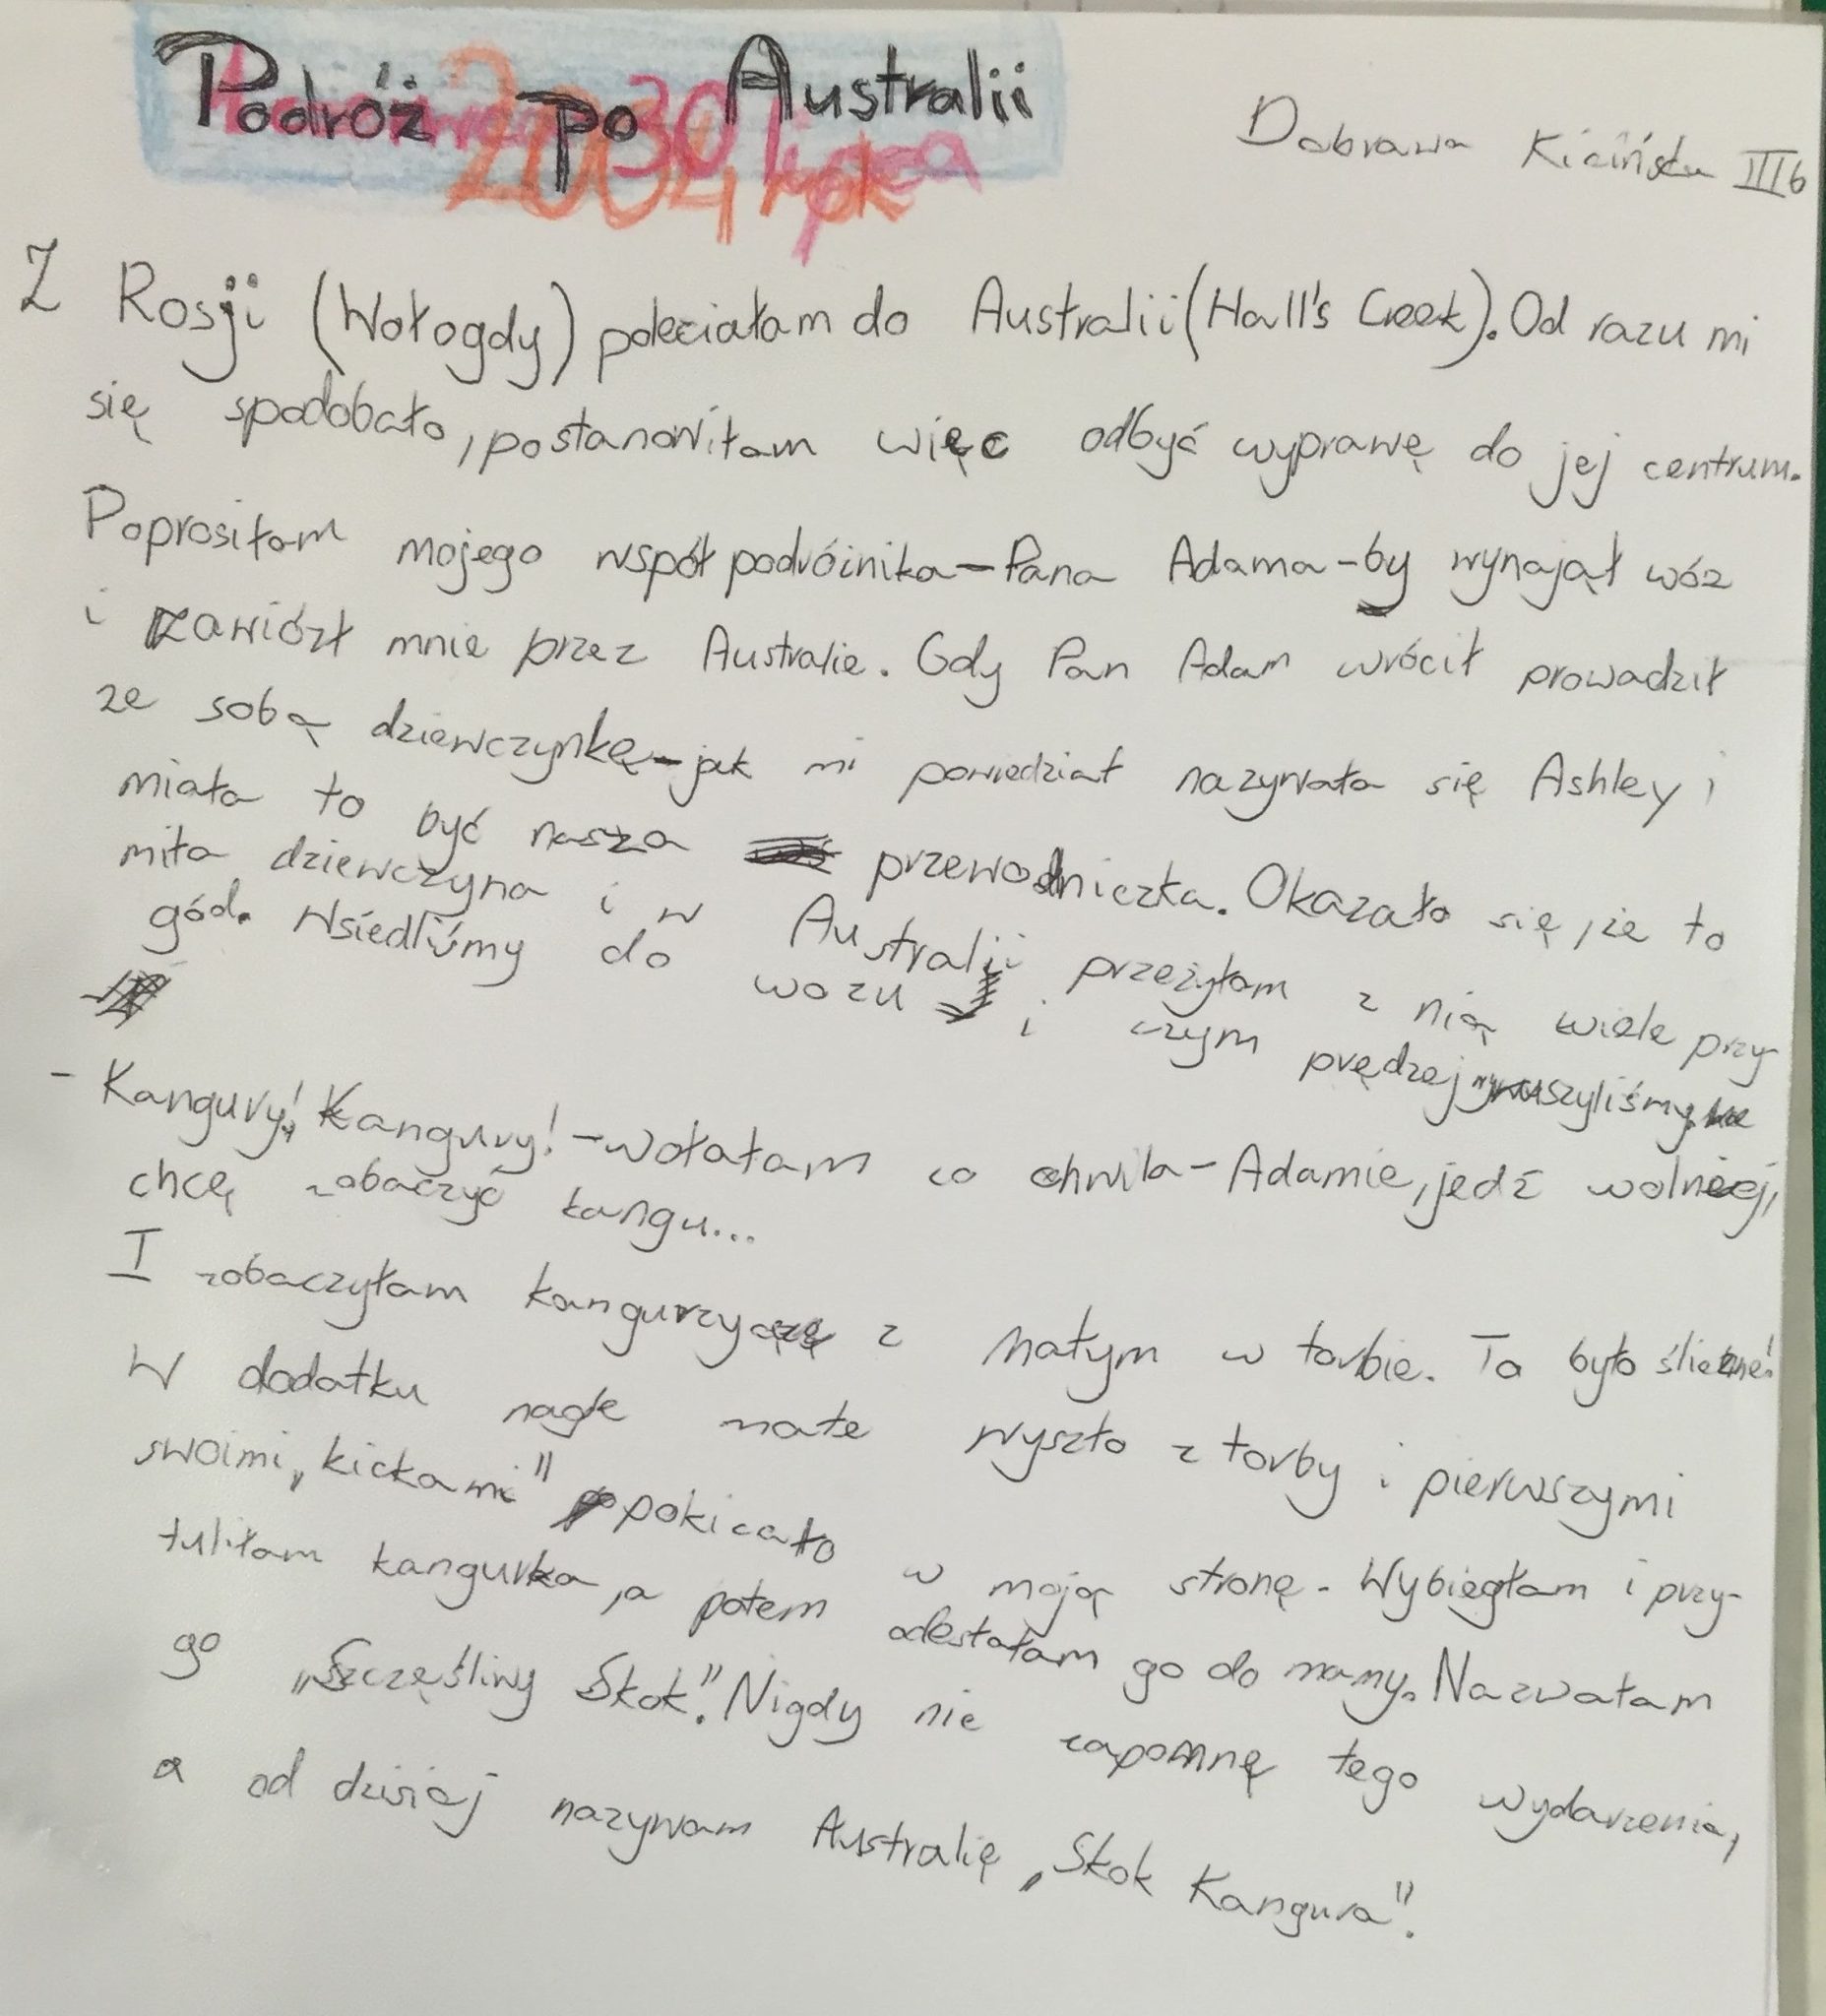 Podróż po Australii
30 lipca
2004 rok
Dobrawa Kicińska III b
Z Rosji (Wołogdy) poleciałam do Australii (Hall's Creek). Od razu mi
się spodobało, postanowiłam więc odbyć wyprawę do jej centrum.
Poprosiłam mojego współpodróżnika-Pana Adama-by wynajął wóz
i zawiózł mnie przez Australie. Gdy Pan Adam wrócił prowadził
ze sobą dziewczynkę-jak mi powiedział nazywała się Ashley i
miała to być nasza przewodniczka. Okazało się, że to
miła dziewczyna i w Australii przeżyłam z nią wiele przy-
gód. Wsiedliśmy do wozu i czym prędzej wyruszyliśmy.
- Kangury! Kangury! -wołałam co chwila- Adamie, jedź wolniej,
chcę zobaczyć kangu...
I zobaczyłam kangurzycę z małym w torbie. To było śliczne!
W dodatku nagle małe wyszło z torby i pierwszymi
swoimi „kickami" pokicało w moją stronę. Wybiegłam i przy-
tuliłam kangurka, a potem odesłałam go do mamy. Nazwałam
go „Szczęśliwy Skok". Nigdy nie zapomnę tego wydarzenia,
a od dzisiaj nazywam Australię „Skok Kangura".